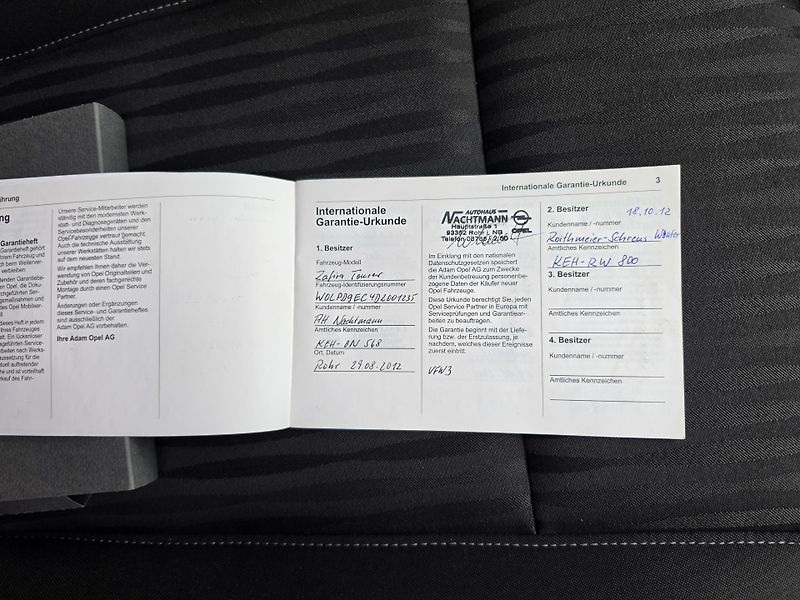 ührung
ng
Garantieheft
Garantieheft gehört
Ihrem Fahrzeug und
beim Weiterver-
verbleiben.
Unsere Service-Mitarbeiter werden
ständig mit den modernsten Werk-
statt- und Diagnosegeräten und den
Servicebesonderheiten unserer
Opel-Fahrzeuge vertraut gemacht.
Auch die technische Ausstattung
unserer Werkstätten halten wir stets
auf dem neuesten Stand.
Wir empfehlen Ihnen daher die Ver-
wendung von Originalteilen und
Zubehör und deren fachgerechte
Montage durch einen Opel Service
Partner.
Änderungen oder Ergänzungen
dieses Service- und Garantieheftes
sind ausschließlich der
Adam Opel AG vorbehalten.
Ihre Adam Opel AG
Internationale Garantie-Urkunde 3
Internationale
Garantie-Urkunde
1. Besitzer
Fahrzeug-Modell
Zafira Tourer
Fahrzeug-Identifizierungsnummer
W0LPD9EC4D2001235
Kundenname / -nummer
AH Nachtmann
Amtliches Kennzeichen
KEH-ON 568
Ort, Datum
Rohr 29.08.2012
AUTOHAUS
NACHTMANN
OPEL
Hauptstraße 1
93352 Rohr i. NB
Im Einklang mit den nationalen
Datenschutzgesetzen speichert
die Adam Opel AG zum Zwecke
der Kundenbetreuung personenbe-
zogene Daten der Käufer neuer
Opel Fahrzeuge.
Diese Urkunde berechtigt Sie, jeden
Opel Service Partner in Europa mit
Serviceprüfungen und Garantiear-
beiten zu beauftragen.
Die Garantie beginnt mit der Liefe-
rung bzw. der Erstzulassung, je
nachdem, welches dieser Ereignisse
zuerst eintritt.
VFW3
2. Besitzer
18.10.12
Kundenname / -nummer
Amtliches Kennzeichen
KEH-RW 800
3. Besitzer
Kundenname / -nummer
Amtliches Kennzeichen
4. Besitzer
Kundenname / -nummer
Amtliches Kennzeichen